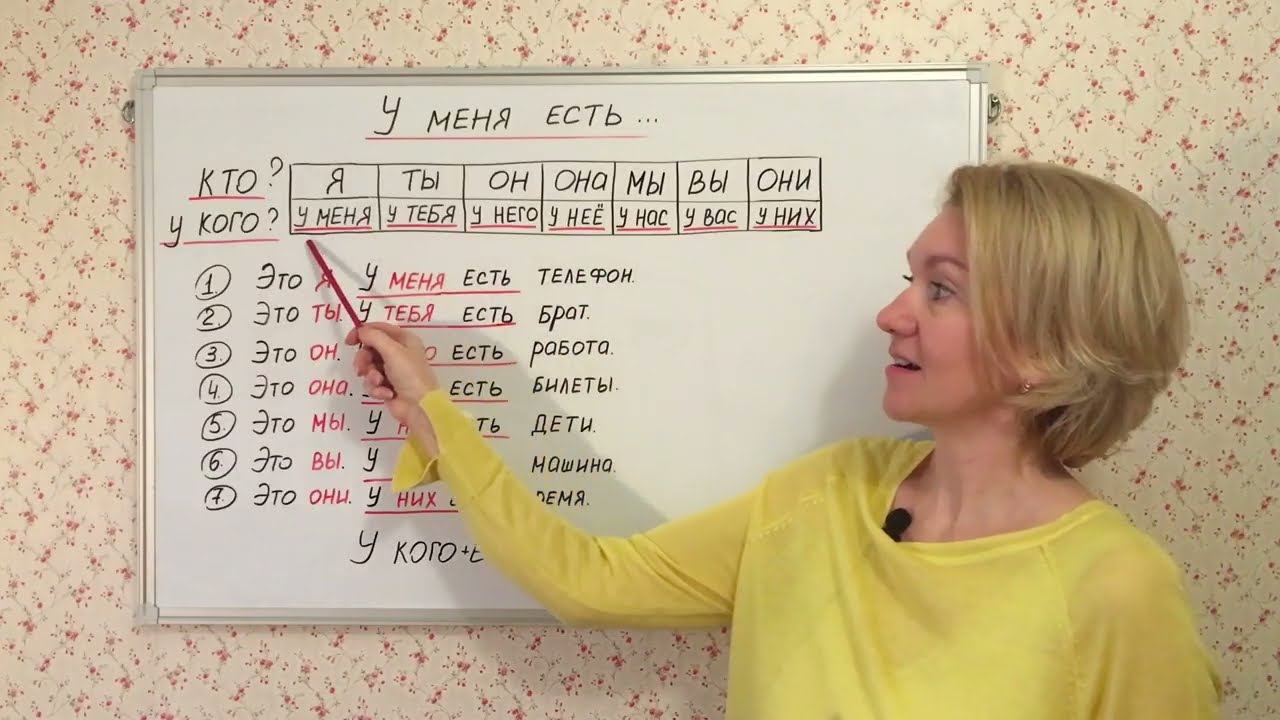 У МЕНЯ ЕСТЬ ...
КТО? Я ТЫ ОН ОНА МЫ ВЫ ОНИ
У КОГО? У МЕНЯ У ТЕБЯ У НЕГО У НЕЁ У НАС У ВАС У НИХ
1 ЭТО Я. У МЕНЯ ЕСТЬ ТЕЛЕФОН.
2. ЭТО ТЫ. У ТЕБЯ ЕСТЬ БРАТ.
3. ЭТО ОН. ЕСТЬ РАБОТА.
4. ЭТО ОНА. ЕСТЬ БИЛЕТЫ.
5. ЭТО МЫ. У ДЕТИ.
6. ЭТО ВЫ. У МАШИНА.
7. ЭТО ОНИ. У НИХ
У КОГО+